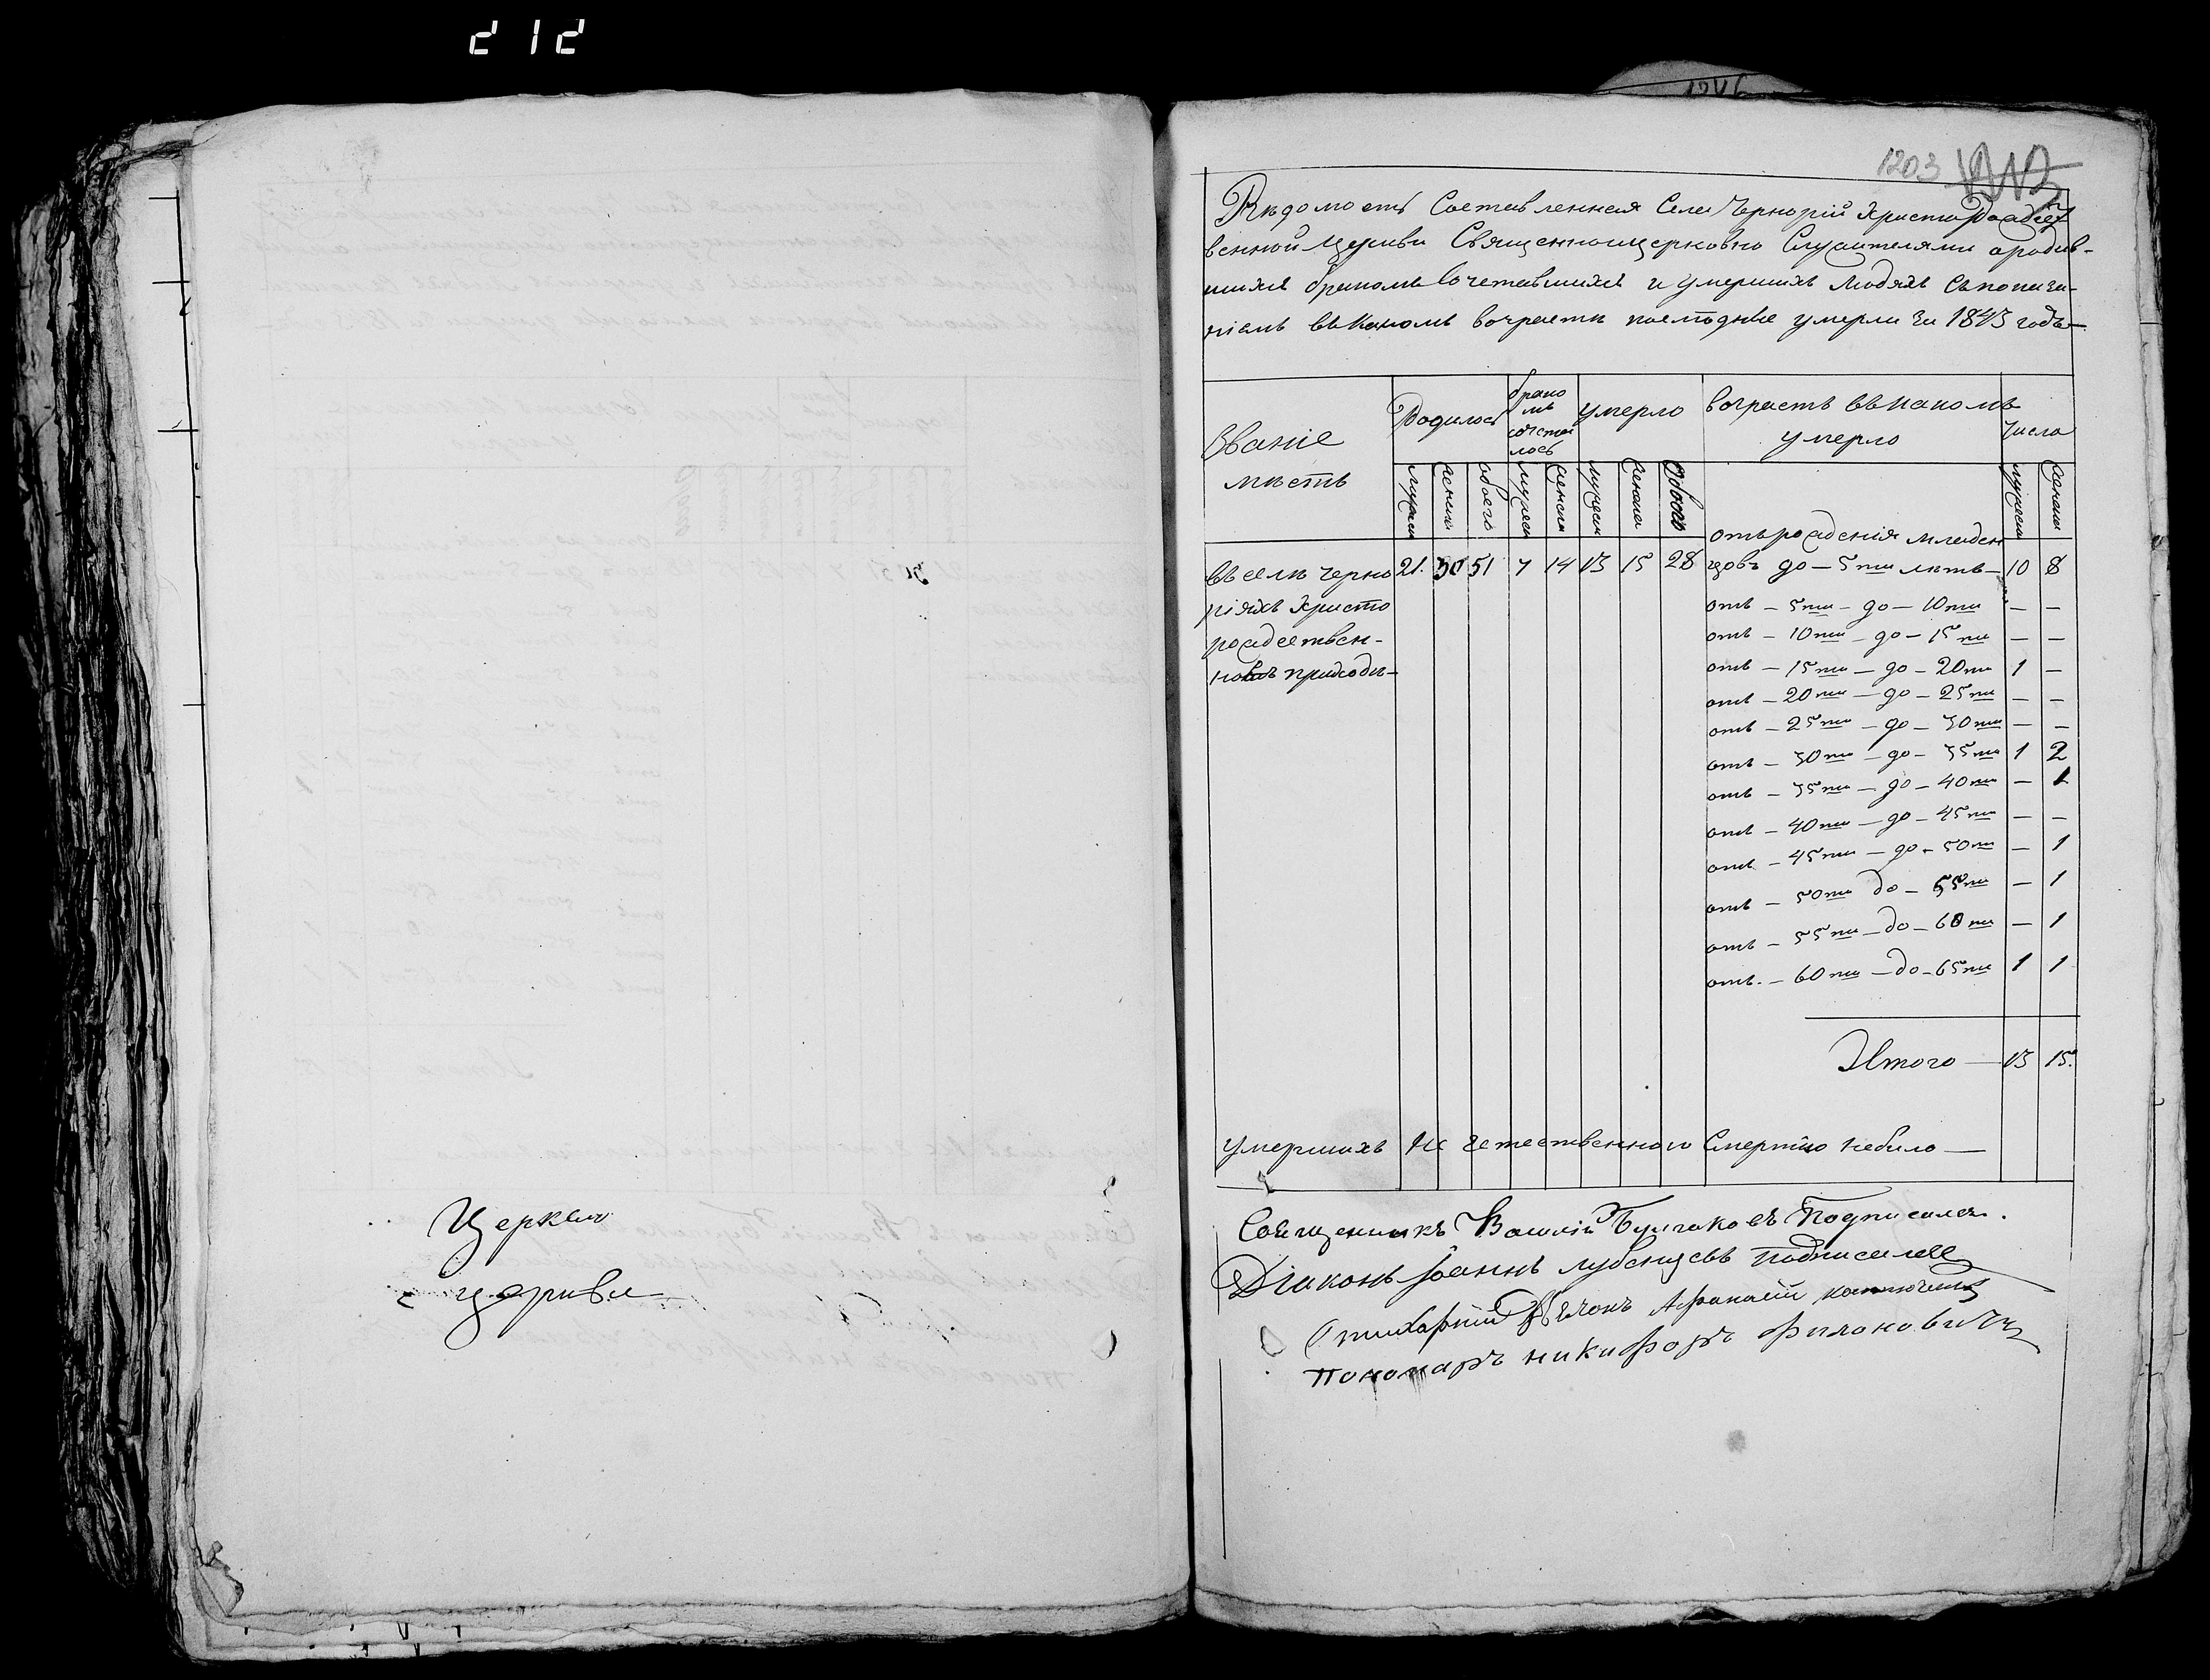 212
Церкви
Церкви
1203
Вѣдомость Составленная Села Чернорій Христорождест
венной Церкви Священноицерковно Служителями ородив-
шихся бракомъ Сочетавшихся и умершихъ людяхъ Съпоказа-
ніемъ въкакомъ возрасти послѣдніе умерли За 1843 годъ—
Званіе
мѣстъ
Родилось
брако
мъ
сочета
лось
умерло
возрастъ въкакомъ
умерло
Число
мужеск
женска
обоего
мужеск
женска
мужеск
женска
Обоего
мужеска
женска
въ селѣ Черно
ріяхъ Христо
рождествен-
номъ приходѣ—
21. 30 51 7 14 13 15 28
отърожденія младен
цовъ до — 5ти лѣтъ — 10 8
отъ — 5ти — до — 10ти — —
отъ — 10ти — до — 15ти — —
отъ — 15ти — до — 20ти 1 —
отъ — 20ти — до — 25ти — —
отъ — 25ти — до — 30ти — —
отъ — 30ти — до — 35ти 1 2
отъ — 35ти — до — 40ти — 1
отъ — 40ти — до — 45ти — —
отъ — 45ти — до — 50ти — 1
отъ — 50ти до — 55ти — 1
отъ — 55ти — до — 60ти — 1
отъ. — 60ти — до — 65ти 1 1
Итого — 13 15.
умершихъ не естественною Смертію небыло —
Священникъ Василій Булгаковъ Подписался.
Діаконъ Іоаннъ Лубенцовъ подписался
Стихарній Дьячокъ Афанасій
пономаръ никифоръ Филоновичъ